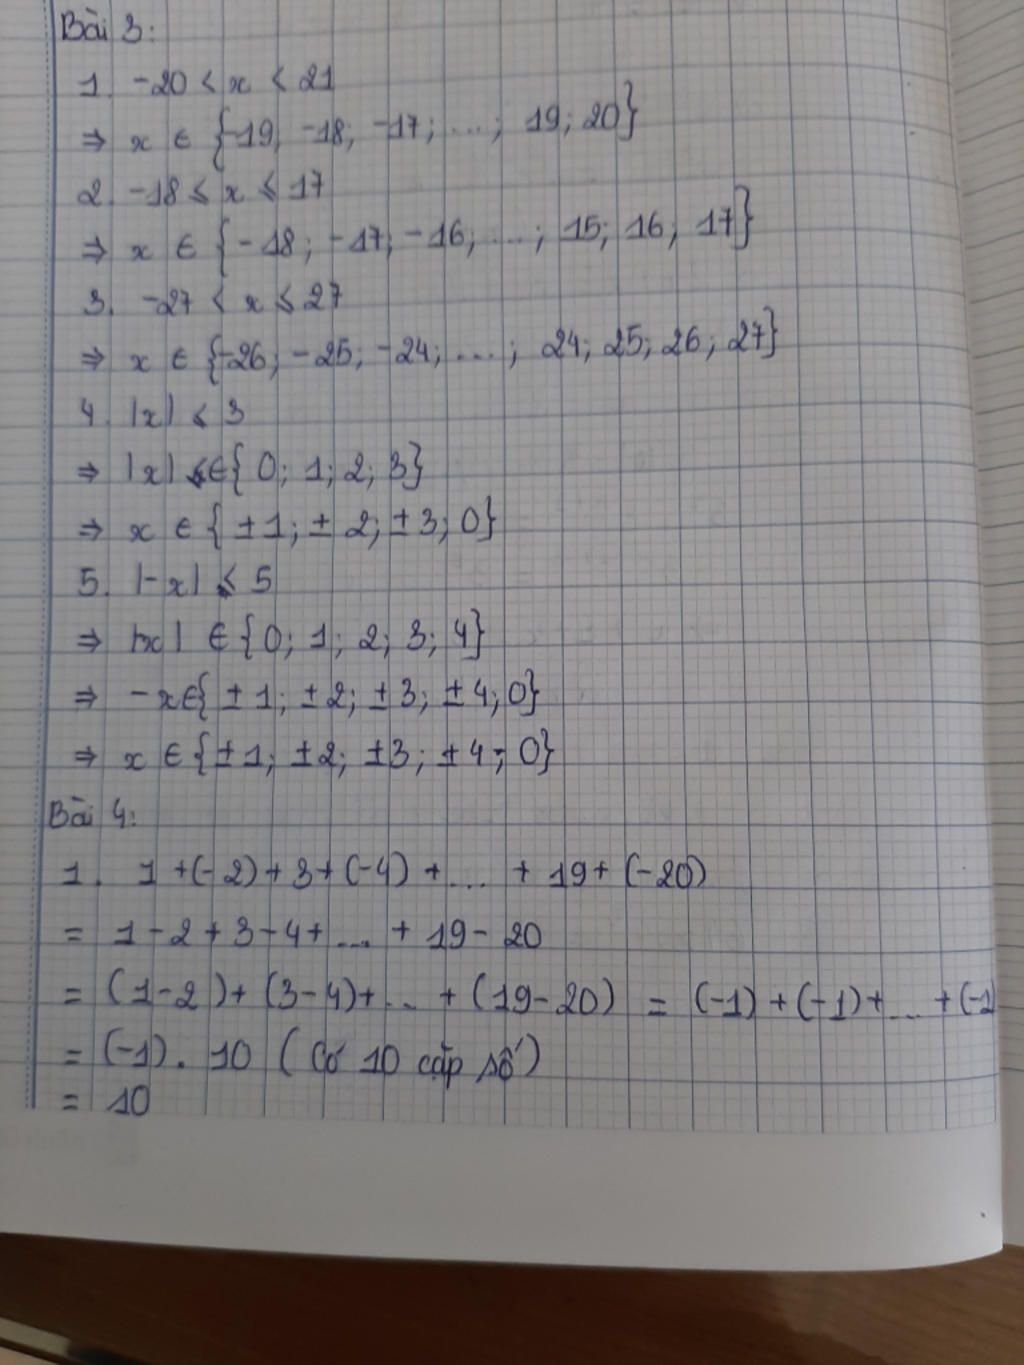 Bài 3:
1. -20 < x < 21
⇒ x ∈ {-19; -18; -17; ...; 19; 20}
2. -18 ≤ x ≤ 17
⇒ x ∈ {-18; -17; -16; ...; 15; 16; 17}
3. -27 < x ≤ 27
⇒ x ∈ {-26; -25; -24; ...; 24; 25; 26; 27}
4. |x| ≤ 3
⇒ |x| ∈ {0; 1; 2; 3}
⇒ x ∈ {±1; ±2; ±3; 0}
5. |-x| < 5
⇒ |-x| ∈ {0; 1; 2; 3; 4}
⇒ -x ∈ {±1; ±2; ±3; ±4; 0}
⇒ x ∈ {±1; ±2; ±3; ±4; 0}
Bài 4:
1. 1 + (-2) + 3 + (-4) + ... + 19 + (-20)
= 1 - 2 + 3 - 4 + ... + 19 - 20
= (1 - 2) + (3 - 4) + ... + (19 - 20) = (-1) + (-1) + ... + (-1)
= (-1) . 10 (Có 10 cặp số)
= 10